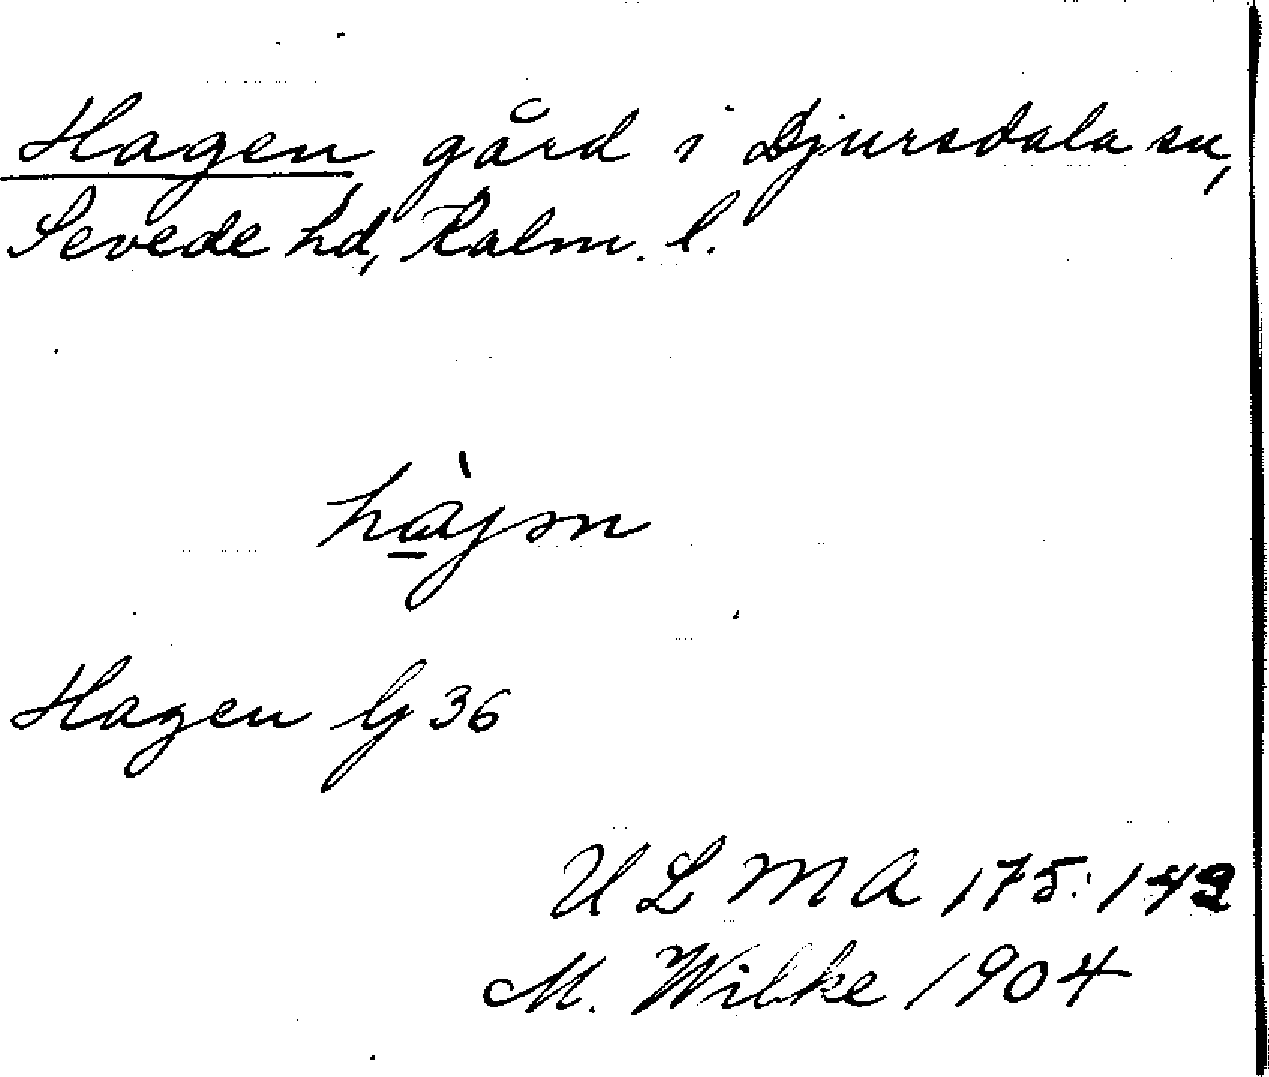 Hagen gård i Djursdala sn,
Sevede hd, Kalm. l.
hàjən
Hagen G 36
ULMA 175:142
M. Wibke 1904